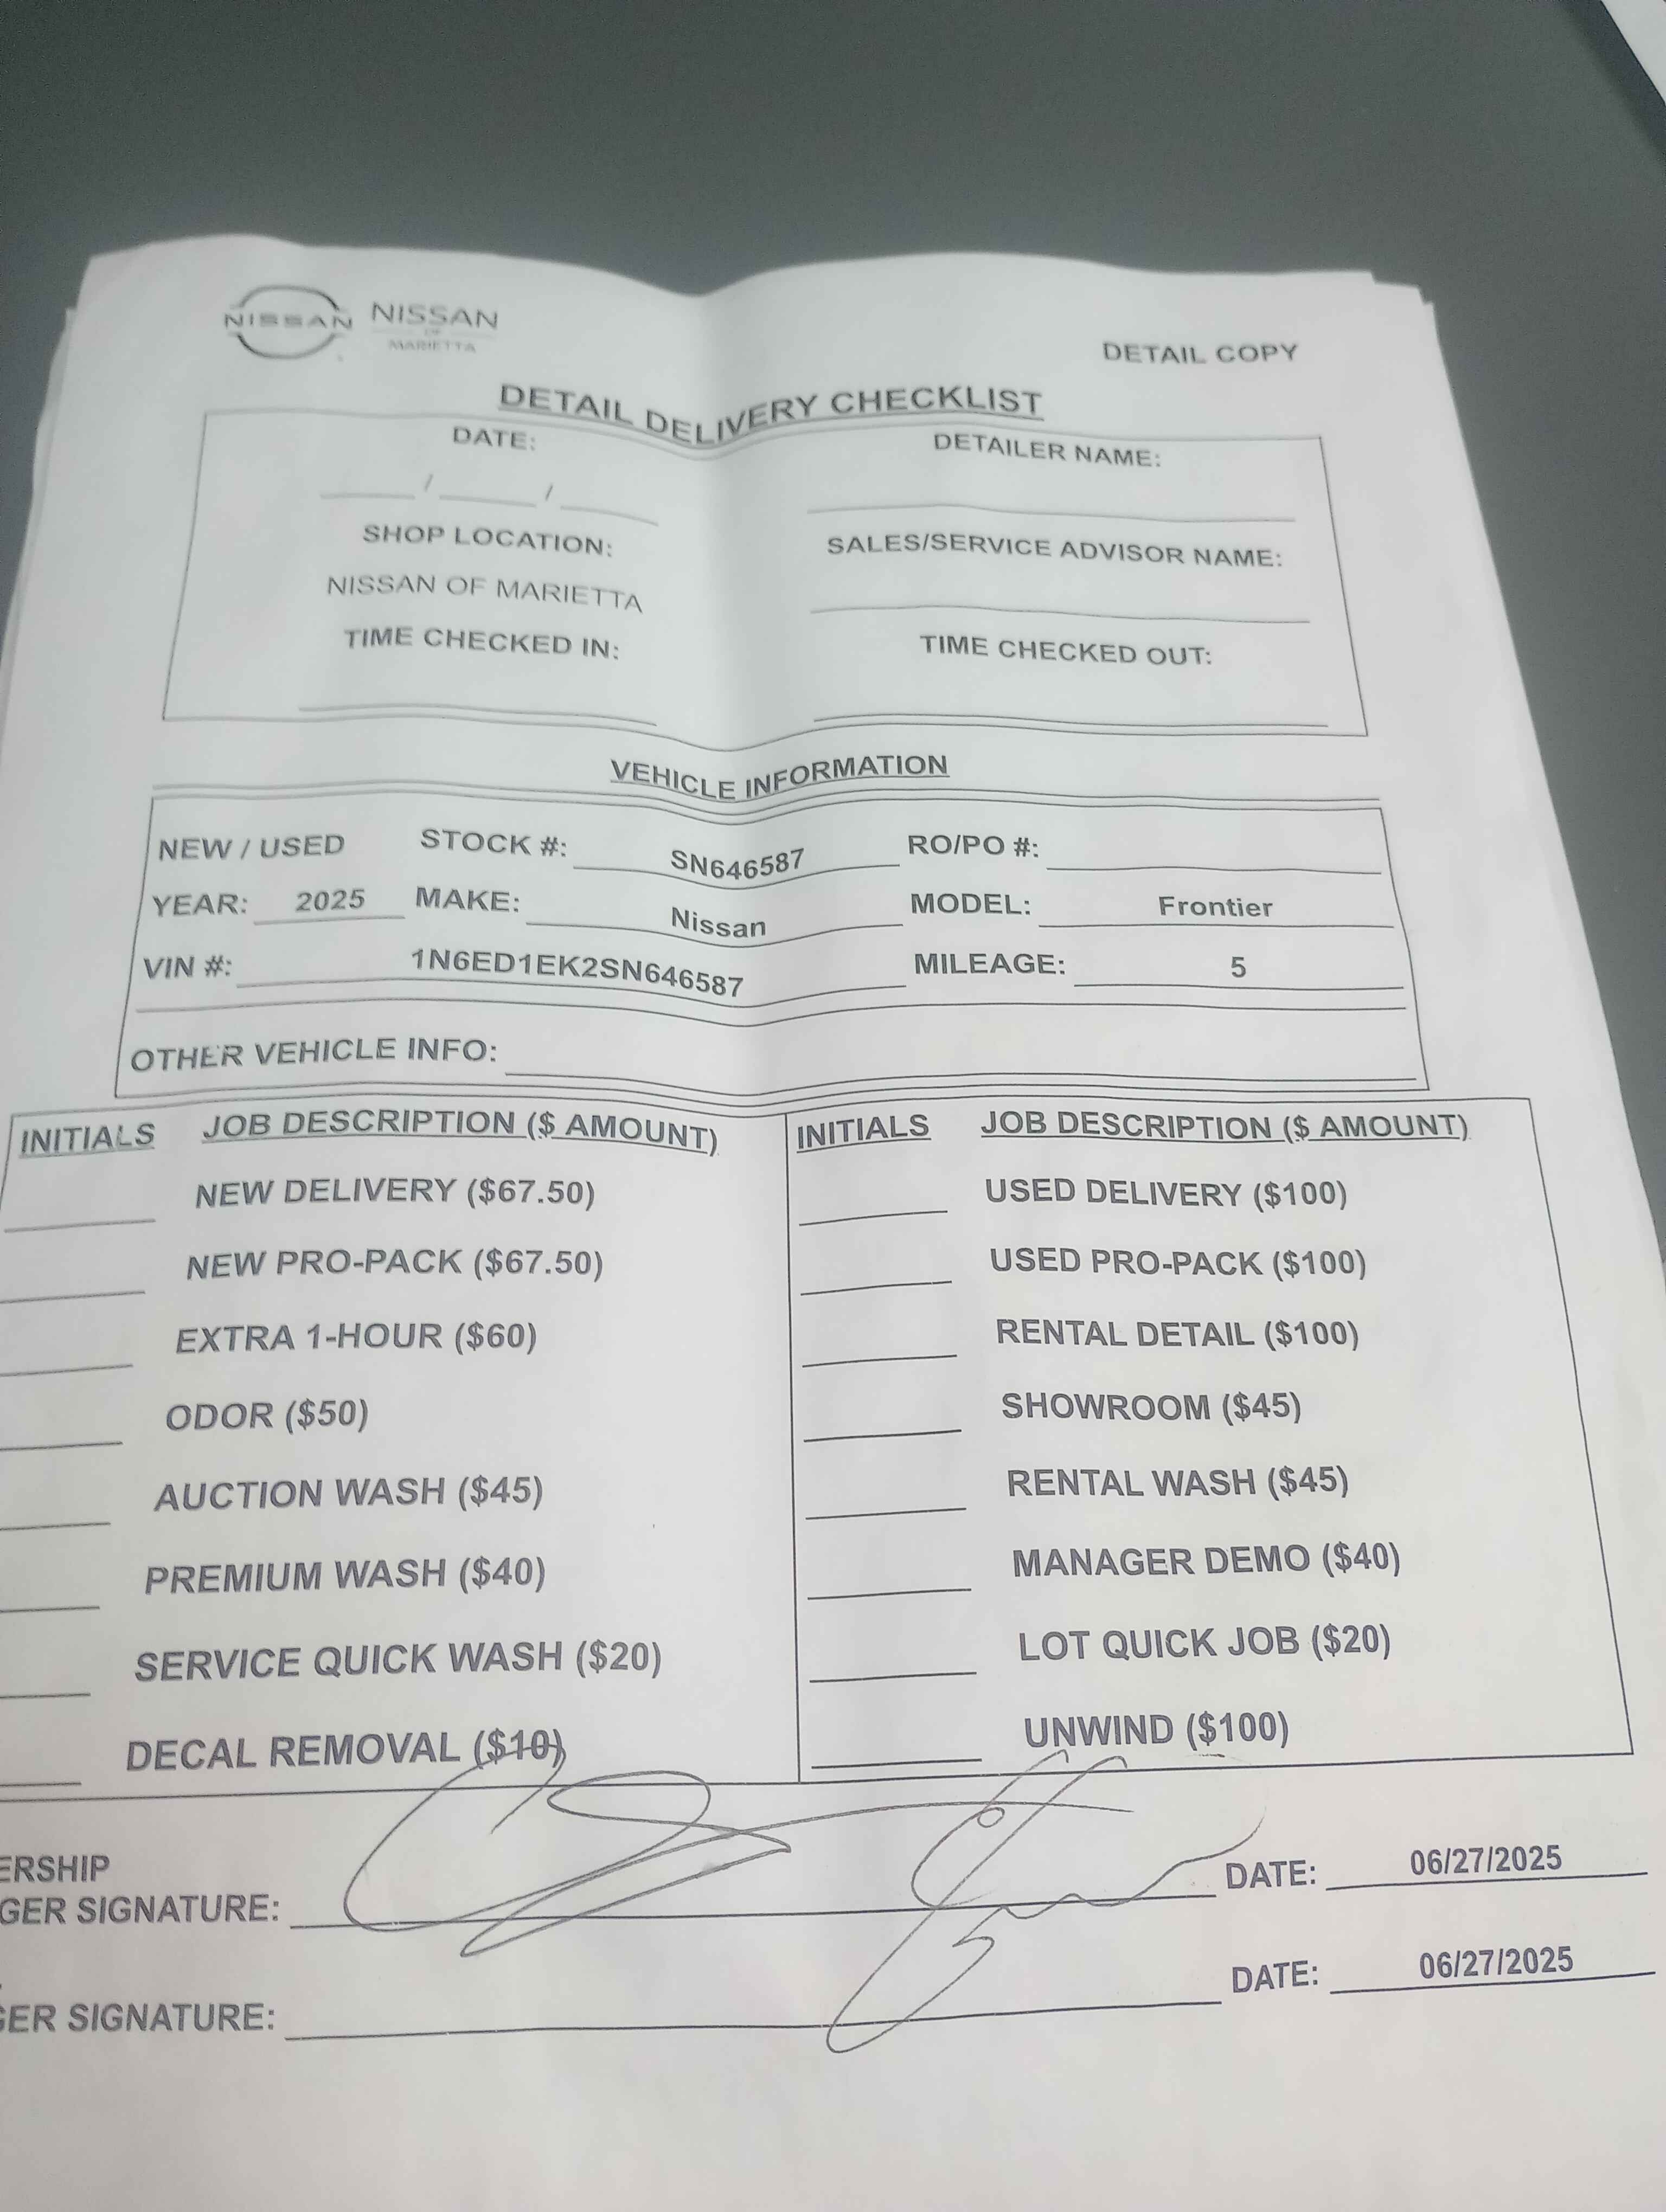 NISSAN NISSAN
OF
MARIETTA
DETAIL COPY
DETAIL DELIVERY CHECKLIST
DATE: DETAILER NAME:
/ /
SHOP LOCATION: SALES/SERVICE ADVISOR NAME:
NISSAN OF MARIETTA
TIME CHECKED IN: TIME CHECKED OUT:
VEHICLE INFORMATION
NEW / USED STOCK #: SN646587 RO/PO #:
YEAR: 2025 MAKE: Nissan MODEL: Frontier
VIN #: 1N6ED1EK2SN646587 MILEAGE: 5
OTHER VEHICLE INFO:
INITIALS JOB DESCRIPTION ($ AMOUNT) INITIALS JOB DESCRIPTION ($ AMOUNT)
NEW DELIVERY ($67.50) USED DELIVERY ($100)
NEW PRO-PACK ($67.50) USED PRO-PACK ($100)
EXTRA 1-HOUR ($60) RENTAL DETAIL ($100)
ODOR ($50) SHOWROOM ($45)
AUCTION WASH ($45) RENTAL WASH ($45)
PREMIUM WASH ($40) MANAGER DEMO ($40)
SERVICE QUICK WASH ($20) LOT QUICK JOB ($20)
DECAL REMOVAL ($10) UNWIND ($100)
ERSHIP
GER SIGNATURE: DATE: 06/27/2025
GER SIGNATURE: DATE: 06/27/2025